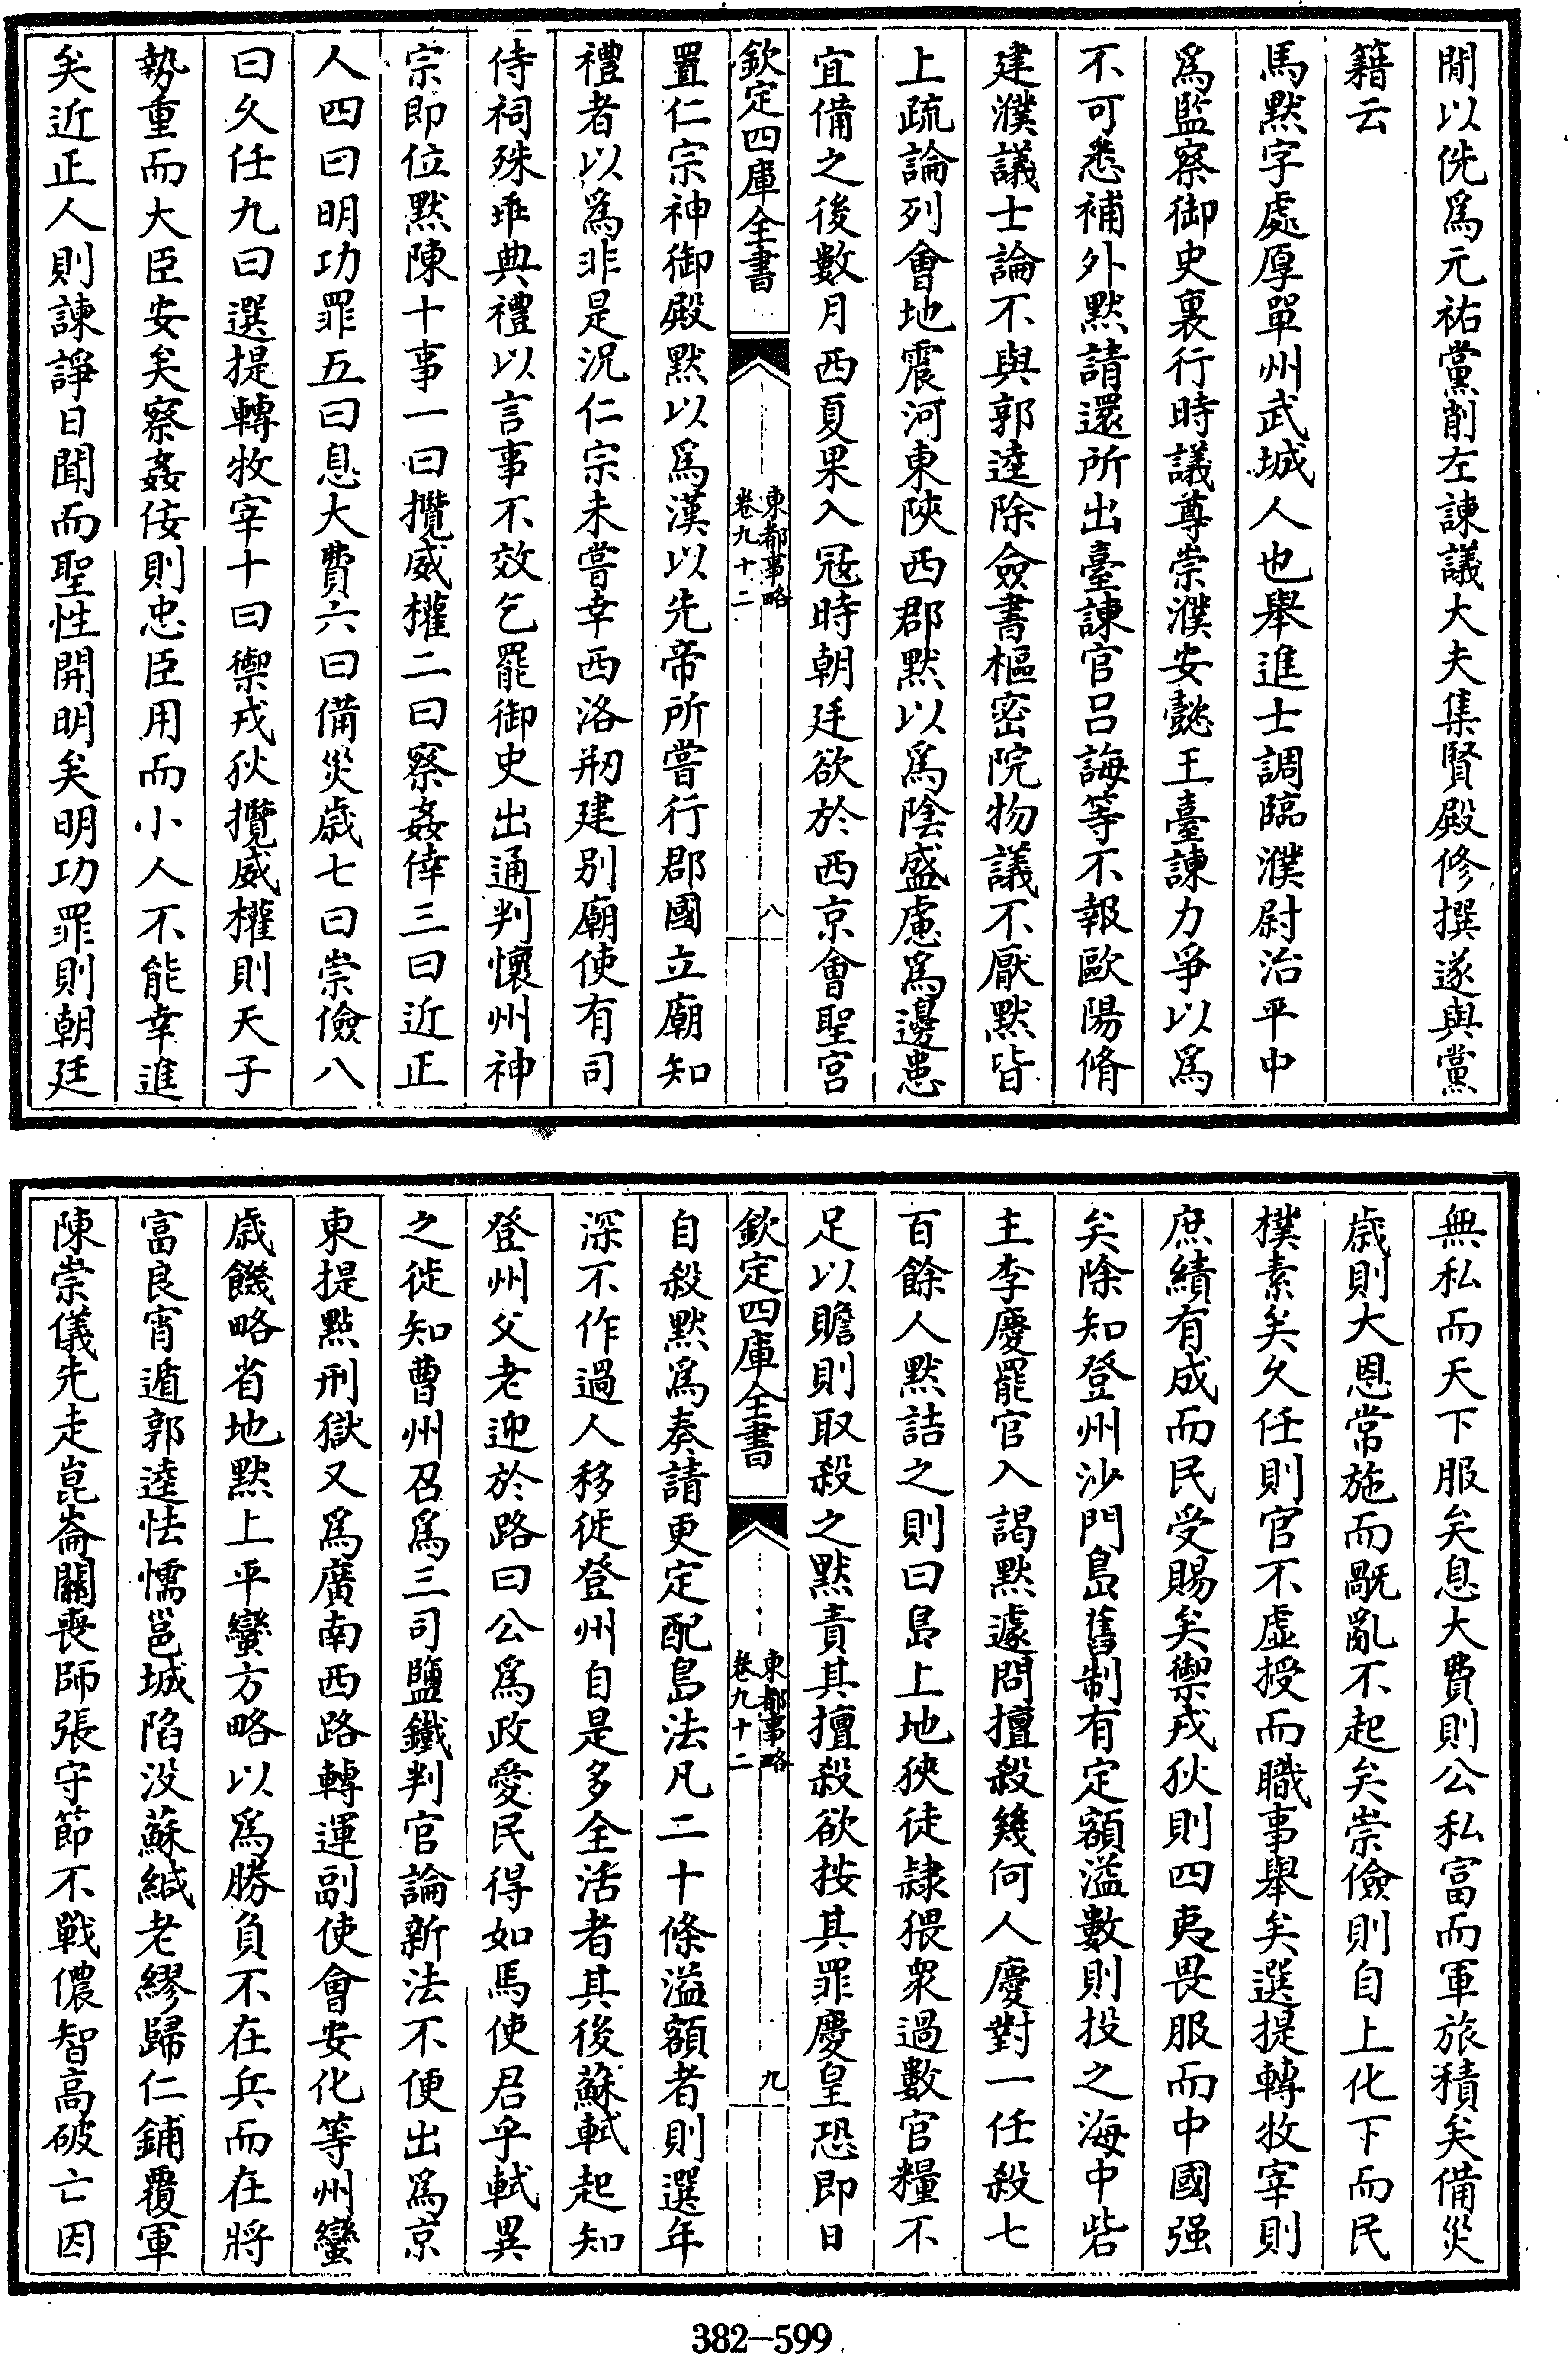 閒以侁爲元祐黨削左諫議大夫集賢殿修撰遂與黨
籍云
馬默字處厚單州武城人也舉進士調臨濮尉治平中
爲監察御史裏行時議尊崇濮安懿王臺諫力爭以爲
不可悉補外默請還所出臺諫官呂誨等不報歐陽脩
建濮議士論不與郭逵除僉書樞密院物議不厭默皆
上疏論列會地震河東陝西郡默以爲陰盛慮爲邊患
宜備之後數月西夏果入冦時朝廷欲於西京會聖宫
欽定四庫全書
東都事略
卷九十二
八
置仁宗神御殿默以爲漢以先帝所嘗行郡國立廟知
禮者以爲非是況仁宗未嘗幸西洛剏建别廟使有司
侍祠殊乖典禮以言事不效乞罷御史出通判懷州神
宗即位默陳十事一曰攬威權二曰察姦倖三曰近正
人四曰明功罪五曰息大費六曰備災歳七曰崇儉八
曰久任九曰選提轉牧宰十曰禦戎狄攬威權則天子
勢重而大臣安矣察姦佞則忠臣用而小人不能幸進
矣近正人則諫諍日聞而聖性開明矣明功罪則朝廷
無私而天下服矣息大費則公私富而軍旅積矣備災
歳則大恩常施而厩亂不起矣崇儉則自上化下而民
樸素矣久任則官不虛授而職事舉矣選提轉牧宰則
庶績有成而民受賜矣禦戎狄則四夷畏服而中國强
矣除知登州沙門島舊制有定額溢數則投之海中砦
主李慶罷官入謁默遽問擅殺幾何人慶對一任殺七
百餘人默詰之則曰島上地狹徒隷猥衆過數官糧不
足以贍則取殺之默責其擅殺欲按其罪慶皇恐即日
欽定四庫全書
東都事略
卷九十二
九
自殺默爲奏請更定配島法凡二十條溢額者則選年
深不作過人移徙登州自是多全活者其後蘇軾起知
登州父老迎於路曰公爲政愛民得如馬使君乎軾異
之徙知曹州召爲三司鹽鐵判官論新法不便出爲京
東提點刑獄又爲廣南西路轉運副使會安化等州蠻
歳饑略省地默上平蠻方略以爲勝負不在兵而在將
富良宵遁郭逵怯懦邕城陷没蘇緘老繆歸仁鋪覆軍
陳崇儀先走崑崙關喪師張守節不戰儂智高破亡因
382—599